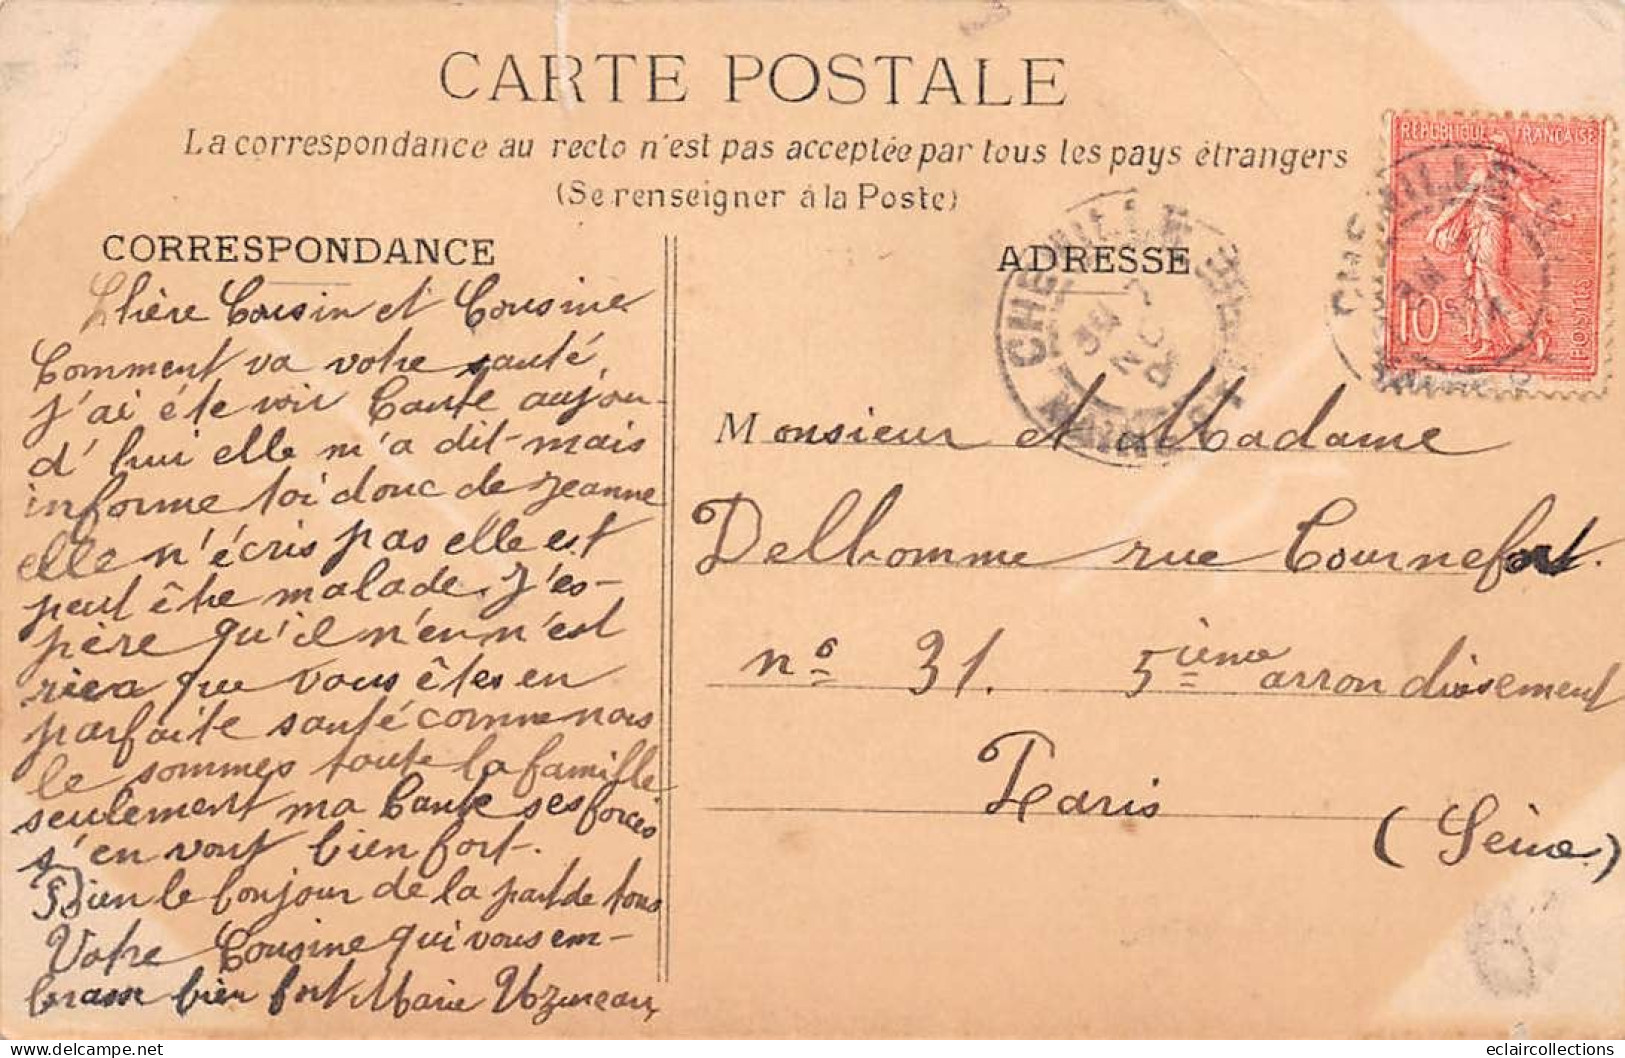 CARTE POSTALE
La correspondance au recto n'est pas acceptée par tous les pays étrangers
(Se renseigner à la Poste)
CORRESPONDANCE
Chère Cousin et Cousine
Comment va votre santé,
j'ai éte voir Tante aujou-
d'hui elle m'a dit-mais
informe toi donc de Jeanne
elle n'écris pas elle est
peut être malade. J'es-
père qu'il n'en n'est
rien que vous êtes en
parfaite santé comme nous
le sommes toute la famille
seulement ma Tante ses forces
s'en vont bien fort.
Bien le bonjour de la part de tous
Votre Cousine qui vous em-
brasse bien fort Marie Uzureau
ADRESSE
REPUBLIQUE FRANÇAISE
10 c.
POSTES
CHEMILLE
Monsieur et Madame
Delhomme rue Tournefort.
no 31. 5ième arrondissement
Paris
(Seine)
eclaircollections
www.delcampe.net